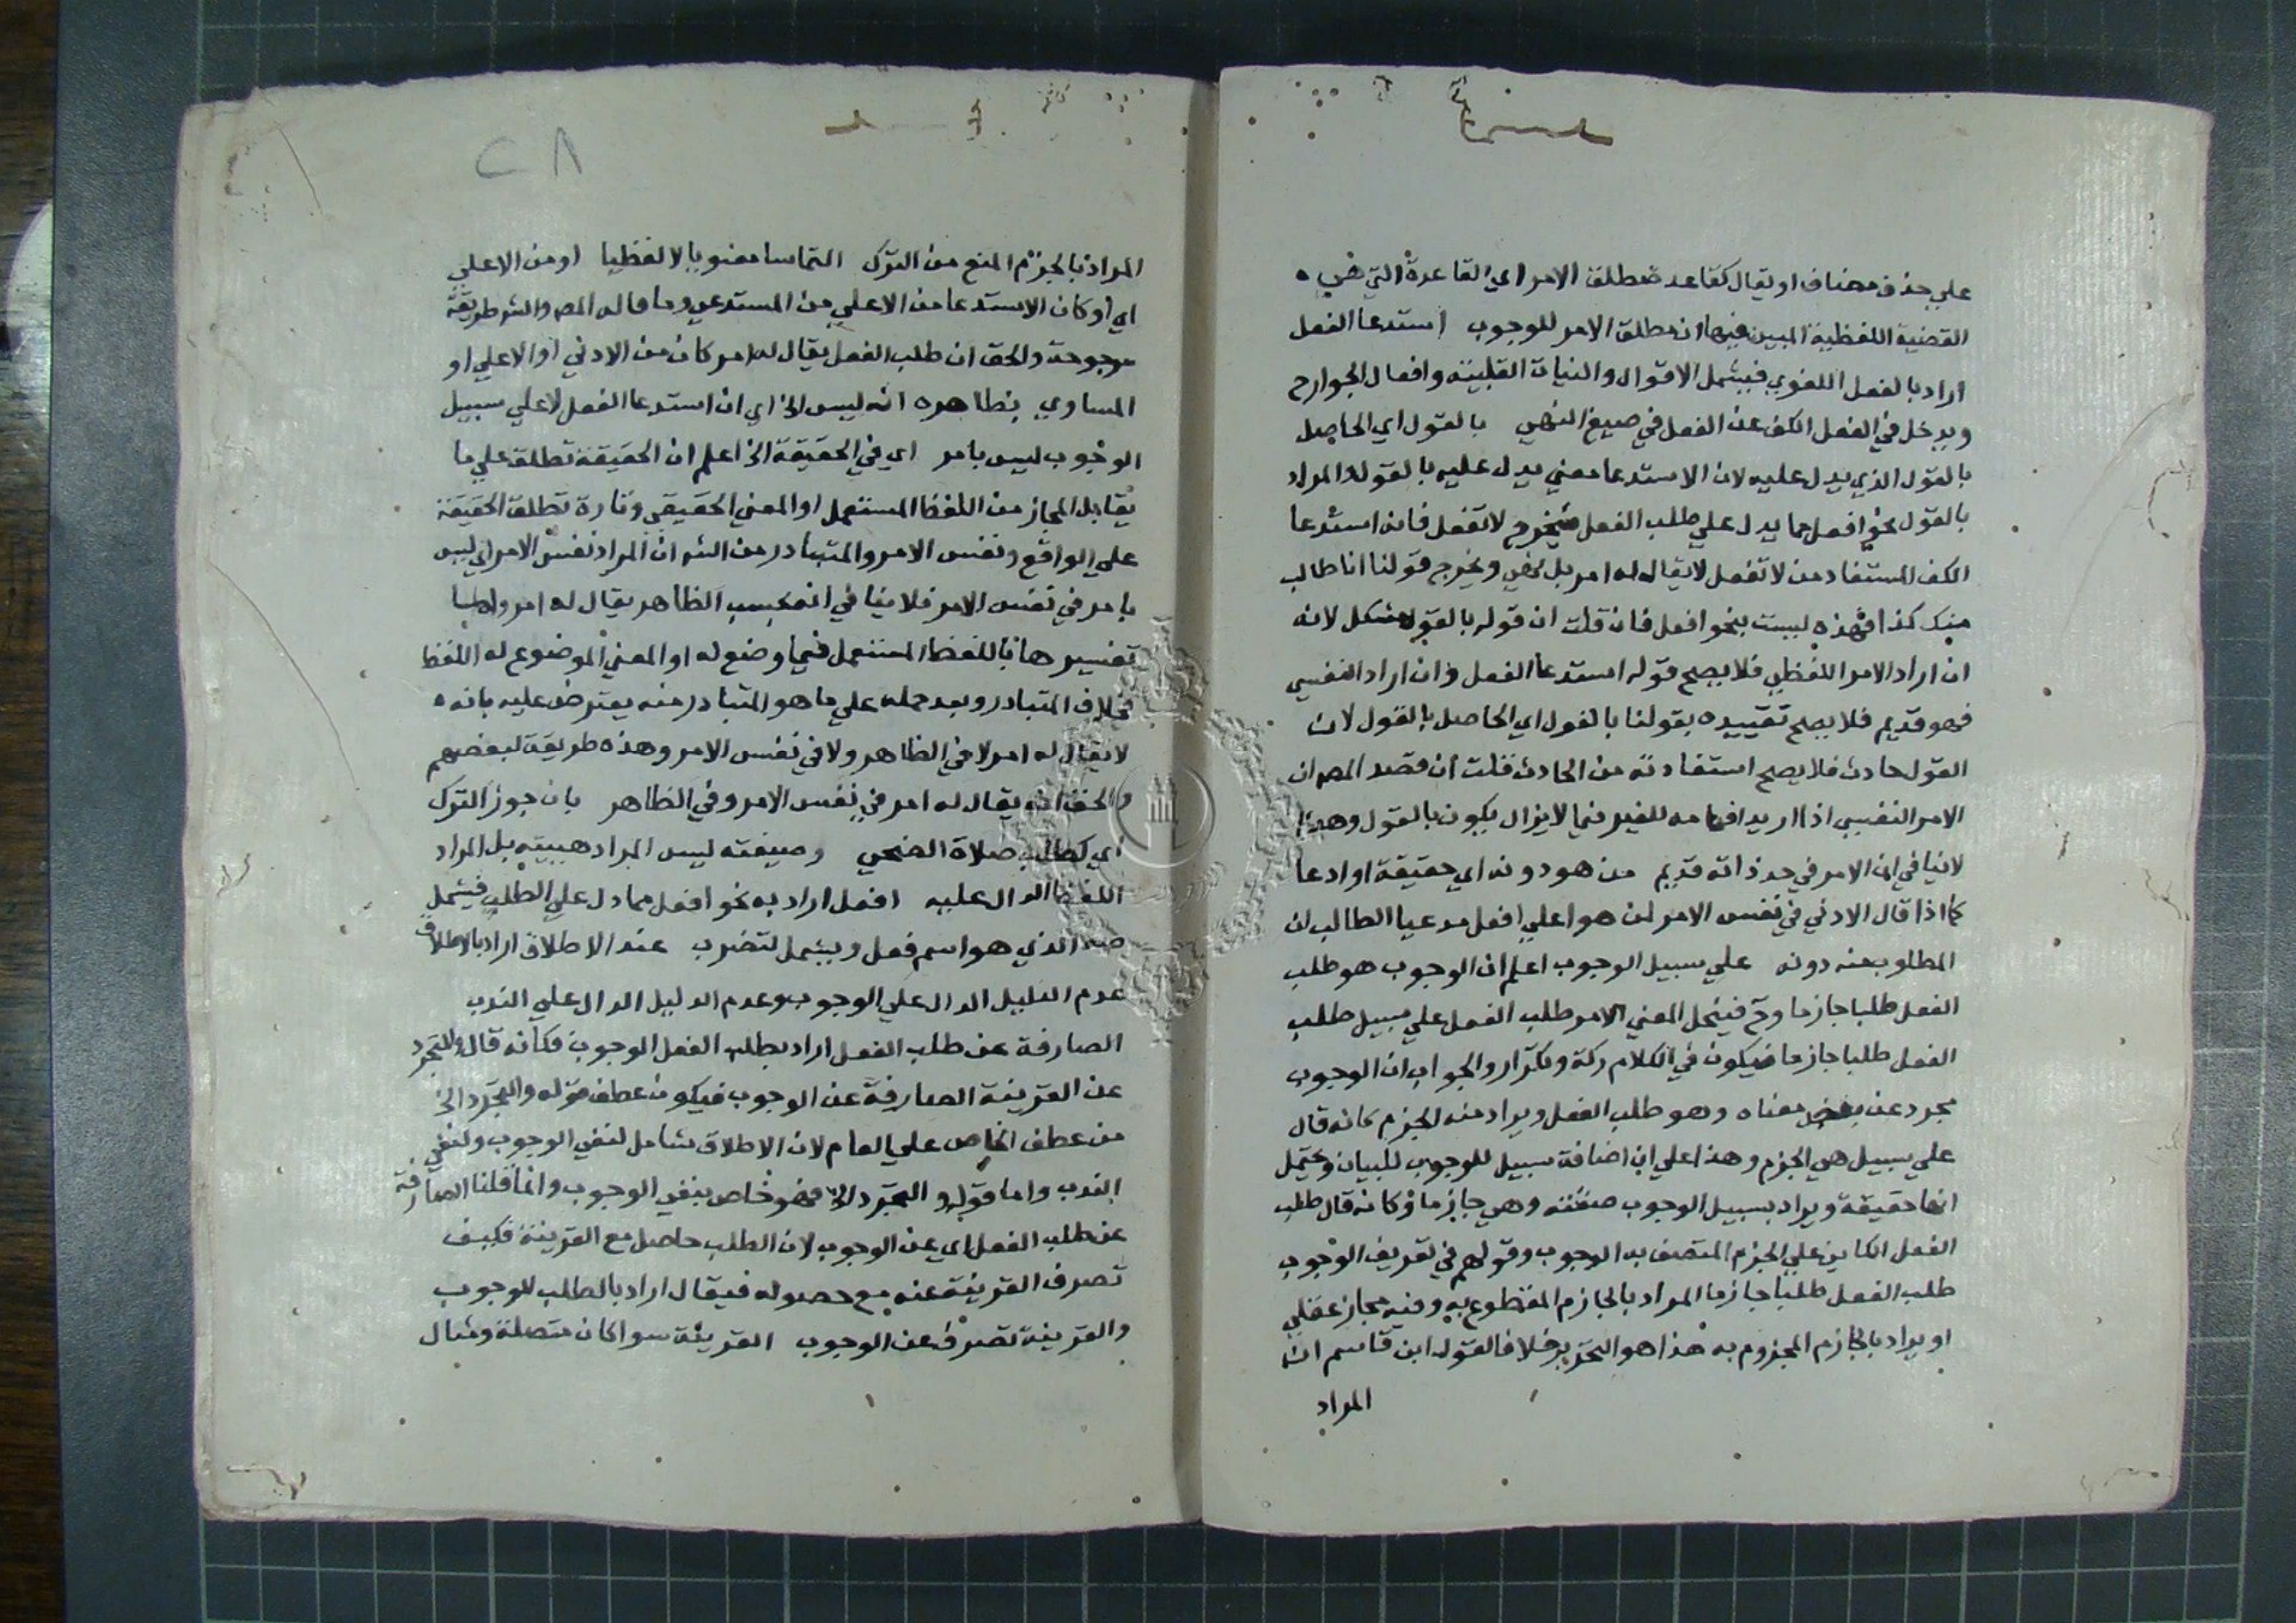 علي حذف مضاف او يقال كقاعدة مطلق الامر اي القاعدة التي هي
القضية اللفظية المبين فيها ان مطلق الامر للوجوب استدعا الفعل
اراد بالفعل اللغوي فيشمل الاقوال والنيات القلبية وافعال الجوارح
ويدخل في الفعل الكف عن الفعل في صيغ النهي بالقول اي الحاصل
بالقول الذي يدل عليه لان الاستدعا معني يدل عليه بالقول والمراد
بالقول نحو افعل مما يدل علي طلب الفعل فيخرج لا تفعل فانه استدعا
الكف المستفاد من لا تفعل لا يقال له امر بل نهي ويخرج قولنا انا طالب
منك كذا فهذه ليست بنحو افعل فان قلت ان قوله بالقول مشكل لانه
ان اراد الامر اللفظي فلا يصح قوله استدعا الفعل وان اراد النفسي
فهو قديم فلا يصح تقييده بقولنا بالقول اي الحاصل بالقول لان
القول حادث فلا يصح استفادته من الحادث قلت ان قصد المص ان
الامر النفسي اذا اريد افهامه للغير فيما لا يزال يكون بالقول وهذا
لا ينافي ان الامر في حد ذاته قديم من هو دونه اي حقيقة او ادعا
كما اذا قال الادني في نفس الامر لمن هو اعلي افعل مدعيا الطالب ان
المطلوب منه دونه علي سبيل الوجوب اعلم ان الوجوب هو طلب
الفعل طلبا جازما وح فينحل المعني الامر طلب الفعل علي سبيل طلب
الفعل طلبا جازما فيكون في الكلام ركة وتكرار والجواب ان الوجوب
مجرد عن بعض معناه وهو طلب الفعل ويراد منه الجزم كانه قال
علي سبيل هي الجزم وهذا علي ان اضافة سبيل للوجوب للبيان ويحتمل
انها حقيقة ويراد بسبيل الوجوب صفته وهي جازما وكانه قال طلب
الفعل الكاين علي الجزم المتصف به الوجوب وقولهم في تعريف الوجوب
طلب الفعل طلبا جازما المراد بالجازم المقطوع به وفيه مجاز عقلي
او يراد بالجازم المجزوم به هذا هو التحرير خلافا لقول ابن قاسم ان
المراد
٢٨
المراد بالجزم المنع من الترك التماسا معنويا لا لفظيا او من الاعلي
اي او كان الاستدعا من الاعلي من المستدعي وما قاله المص والش طريقة
مرجوحة والحق ان طلب الفعل يقال له امر كان من الادني او الاعلي او
المساوي بظاهره انه ليس الخ اي ان استدعا الفعل لا علي سبيل
الوجوب ليس بامر اي في الحقيقة الخ اعلم ان الحقيقة تطلق علي ما
يقابل المجاز من اللفظ المستعمل او المعني الحقيقي وتارة تطلق الحقيقة
علي الواقع ونفس الامر والمتبادر من الش ان المراد نفس الامر اي ليس
بامر في نفس الامر فلا ينافي انه بحسب الظاهر يقال له امر
تفسيرها باللفظ المستعمل فيما وضع له او المعني الموضوع له اللفظ
خلاف المتبادر وبعد حمله علي ما هو المتبادر منه يعترض عليه بانه
لا يقال له امر لا في الظاهر ولا في نفس الامر وهذه طريقة لبعضهم
والحق انه يقال له امر في نفس الامر وفي الظاهر بان جوز الترك
اي كطلب صلاة الضحي وصيغته ليس المراد هيبته بل المراد
اللفظ الدال عليه افعل اراد به نحو افعل مما دل علي الطلب فيشمل
صه الذي هو اسم فعل ويشمل لتضرب عند الاطلاق اراد بالاطلاق
عدم الدليل الدال علي الوجوب وعدم الدليل الدال علي الندب
الصارفة عن طلب الفعل اراد بطلب الفعل الوجوب فكانه قال والتجرد
عن القرينة الصارفة عن الوجوب فيكون عطف قوله والتجرد الخ
من عطف الخاص علي العام لان الاطلاق شامل لنفي الوجوب ولنفي
الندب واما قوله والتجرد الخ فهو خاص بنفي الوجوب وانما قلنا الصارفة
عن طلب الفعل اي عن الوجوب لان الطلب حاصل مع القرينة فكيف
تصرف القرينة عنه مع حصوله فيقال اراد بالطلب الوجوب
والقرينة تصرف عن الوجوب القرينة سوا كان متصلة ومثال